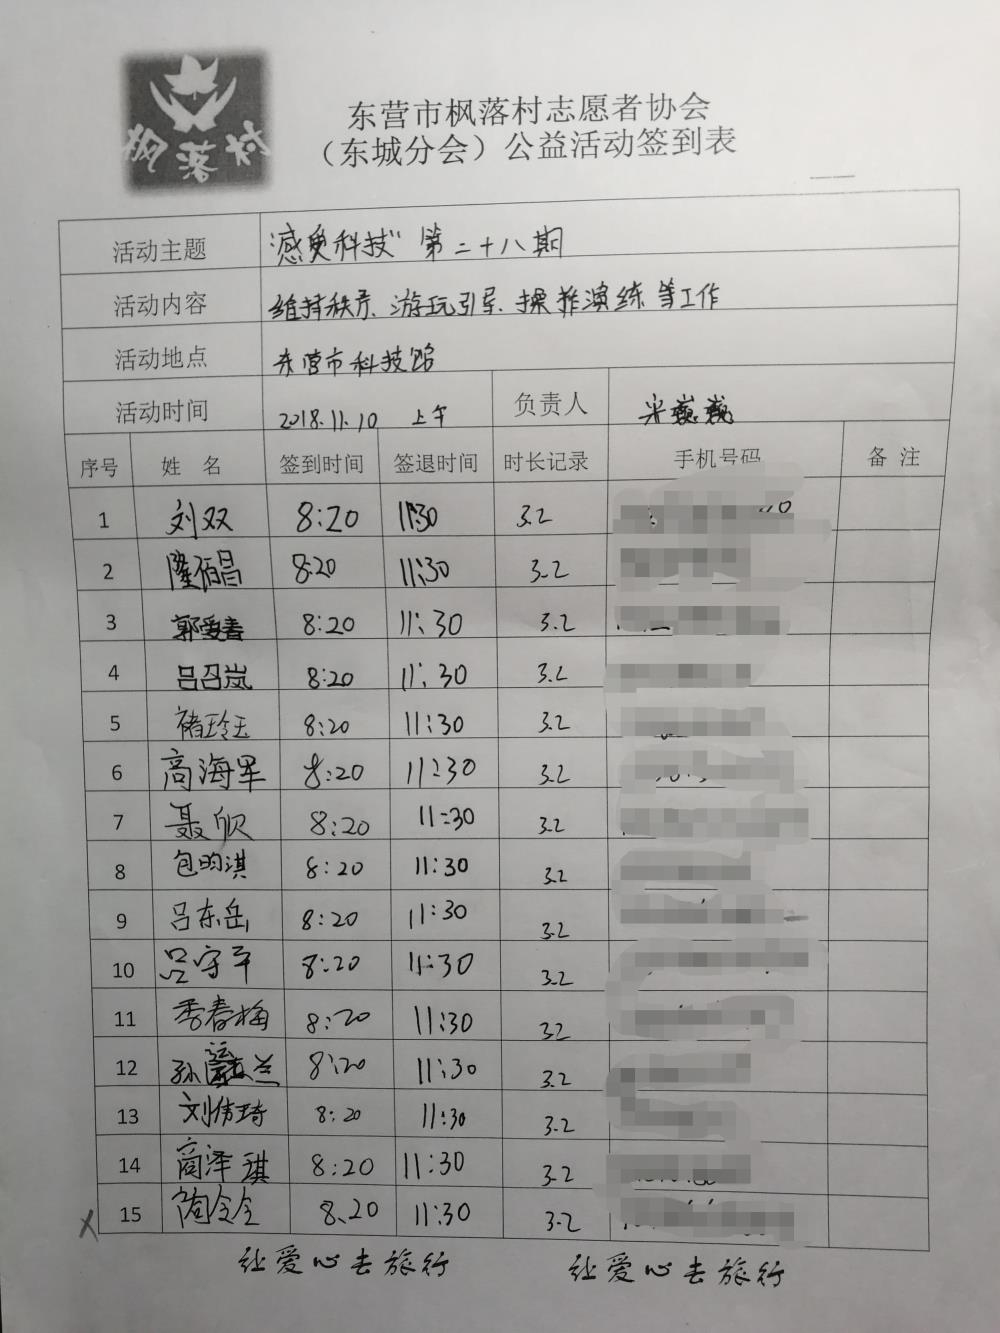 枫落村
东营市枫落村志愿者协会
（东城分会）公益活动签到表
活动主题 "感受科技" 第二十八期
活动内容 维持秩序、游玩引导、操作演练等工作
活动地点 东营市科技馆
活动时间 2018.11.10 上午 负责人 巍巍
序号 姓 名 签到时间 签退时间 时长记录 手机号码 备 注
1 刘双 8:20 11:30 3.2
2 隆佰昌 8:20 11:30 3.2
3 郭爱春 8:20 11:30 3.2
4 吕召岚 8:20 11:30 3.2
5 褚玲玉 8:20 11:30 3.2
6 高海军 8:20 11:30 3.2
7 聂欣 8:20 11:30 3.2
8 包昀淇 8:20 11:30 3.2
9 吕东岳 8:20 11:30 3.2
10 吕守平 8:20 11:30 3.2
11 季春梅 8:20 11:30 3.2
12 孙 兰 8:20 11:30 3.2
13 刘倩琦 8:20 11:30 3.2
14 商泽琪 8:20 11:30 3.2
X 15 陶令令 8.20 11:30 3.2
让爱心去旅行 让爱心去旅行